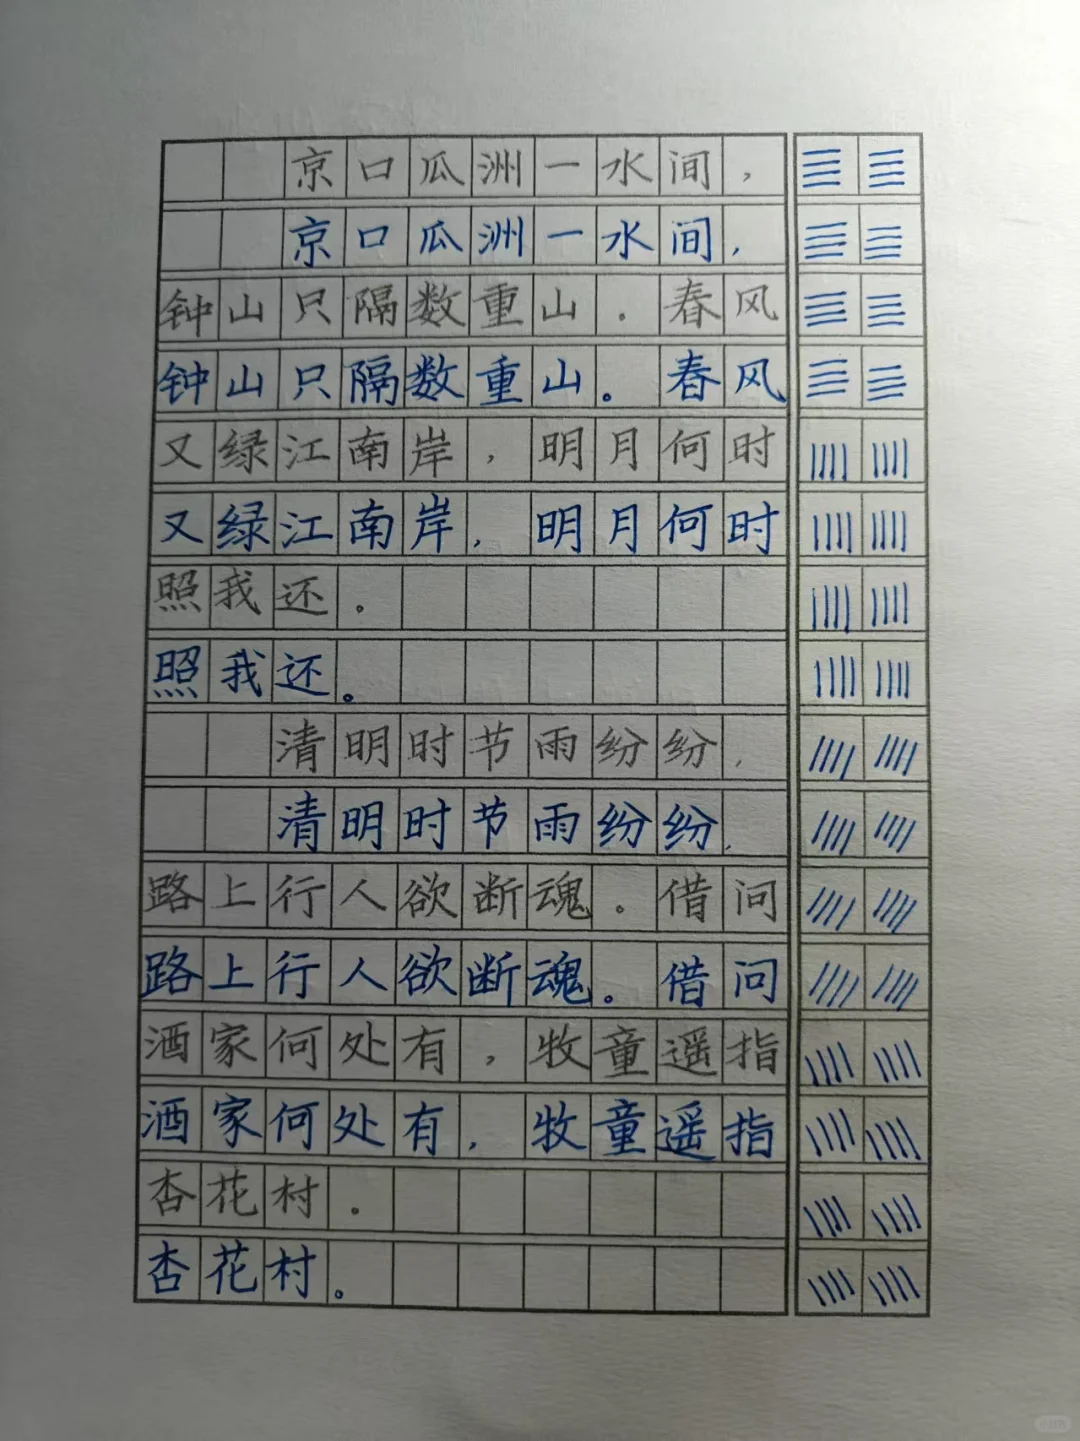 京口瓜洲一水间，
京口瓜洲一水间，
钟山只隔数重山。春风
钟山只隔数重山。春风
又绿江南岸，明月何时
又绿江南岸，明月何时
照我还。
照我还。
清明时节雨纷纷，
清明时节雨纷纷，
路上行人欲断魂。借问
路上行人欲断魂。借问
酒家何处有，牧童遥指
酒家何处有，牧童遥指
杏花村。
杏花村。